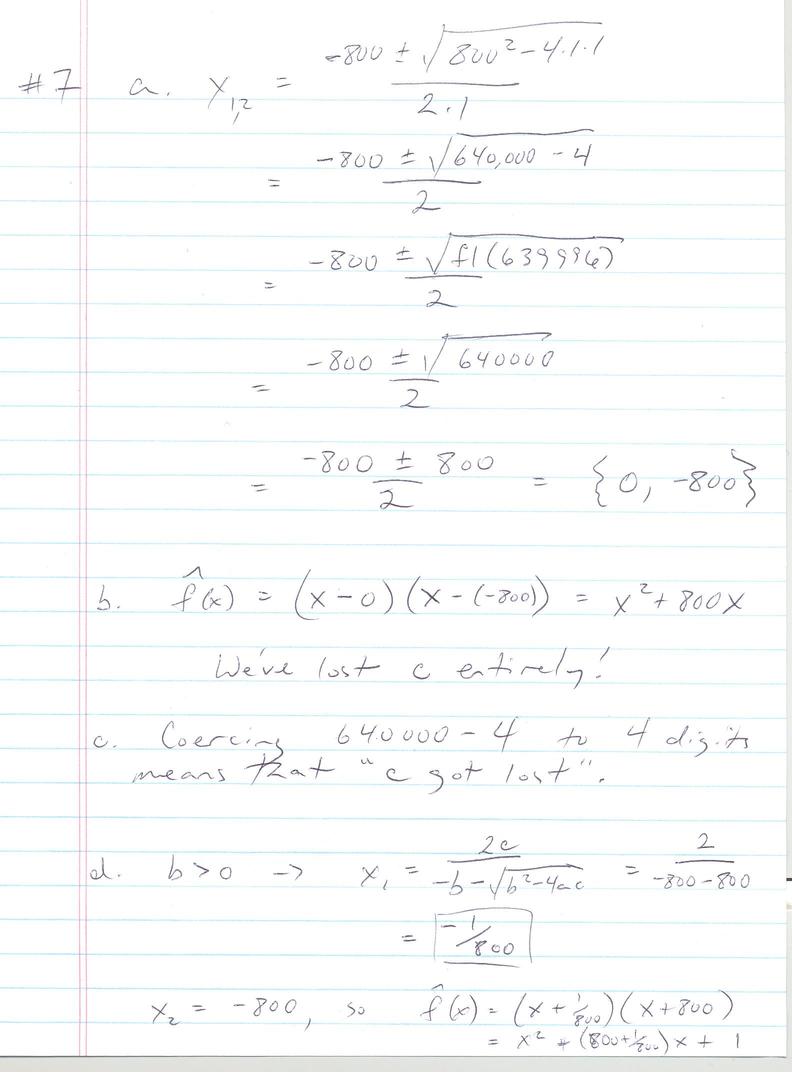 #7 a. x_{1,2} = (-800 ± √(800² - 4·1·1)) / (2·1)
= (-800 ± √(640,000 - 4)) / 2
= (-800 ± √(fl(639996))) / 2
= (-800 ± √(640000)) / 2
= (-800 ± 800) / 2 = {0, -800}
b. f̂(x) = (x-0)(x-(-800)) = x² + 800x
We've lost c entirely!
c. Coercing 640000-4 to 4 digits
means that "c got lost".
d. b>0 -> x₁ = 2c / (-b - √(b²-4ac)) = 2 / (-800-800)
= -1/800
x₂ = -800, so f̂(x) = (x + 1/800)(x+800)
= x² + (800+1/800)x + 1